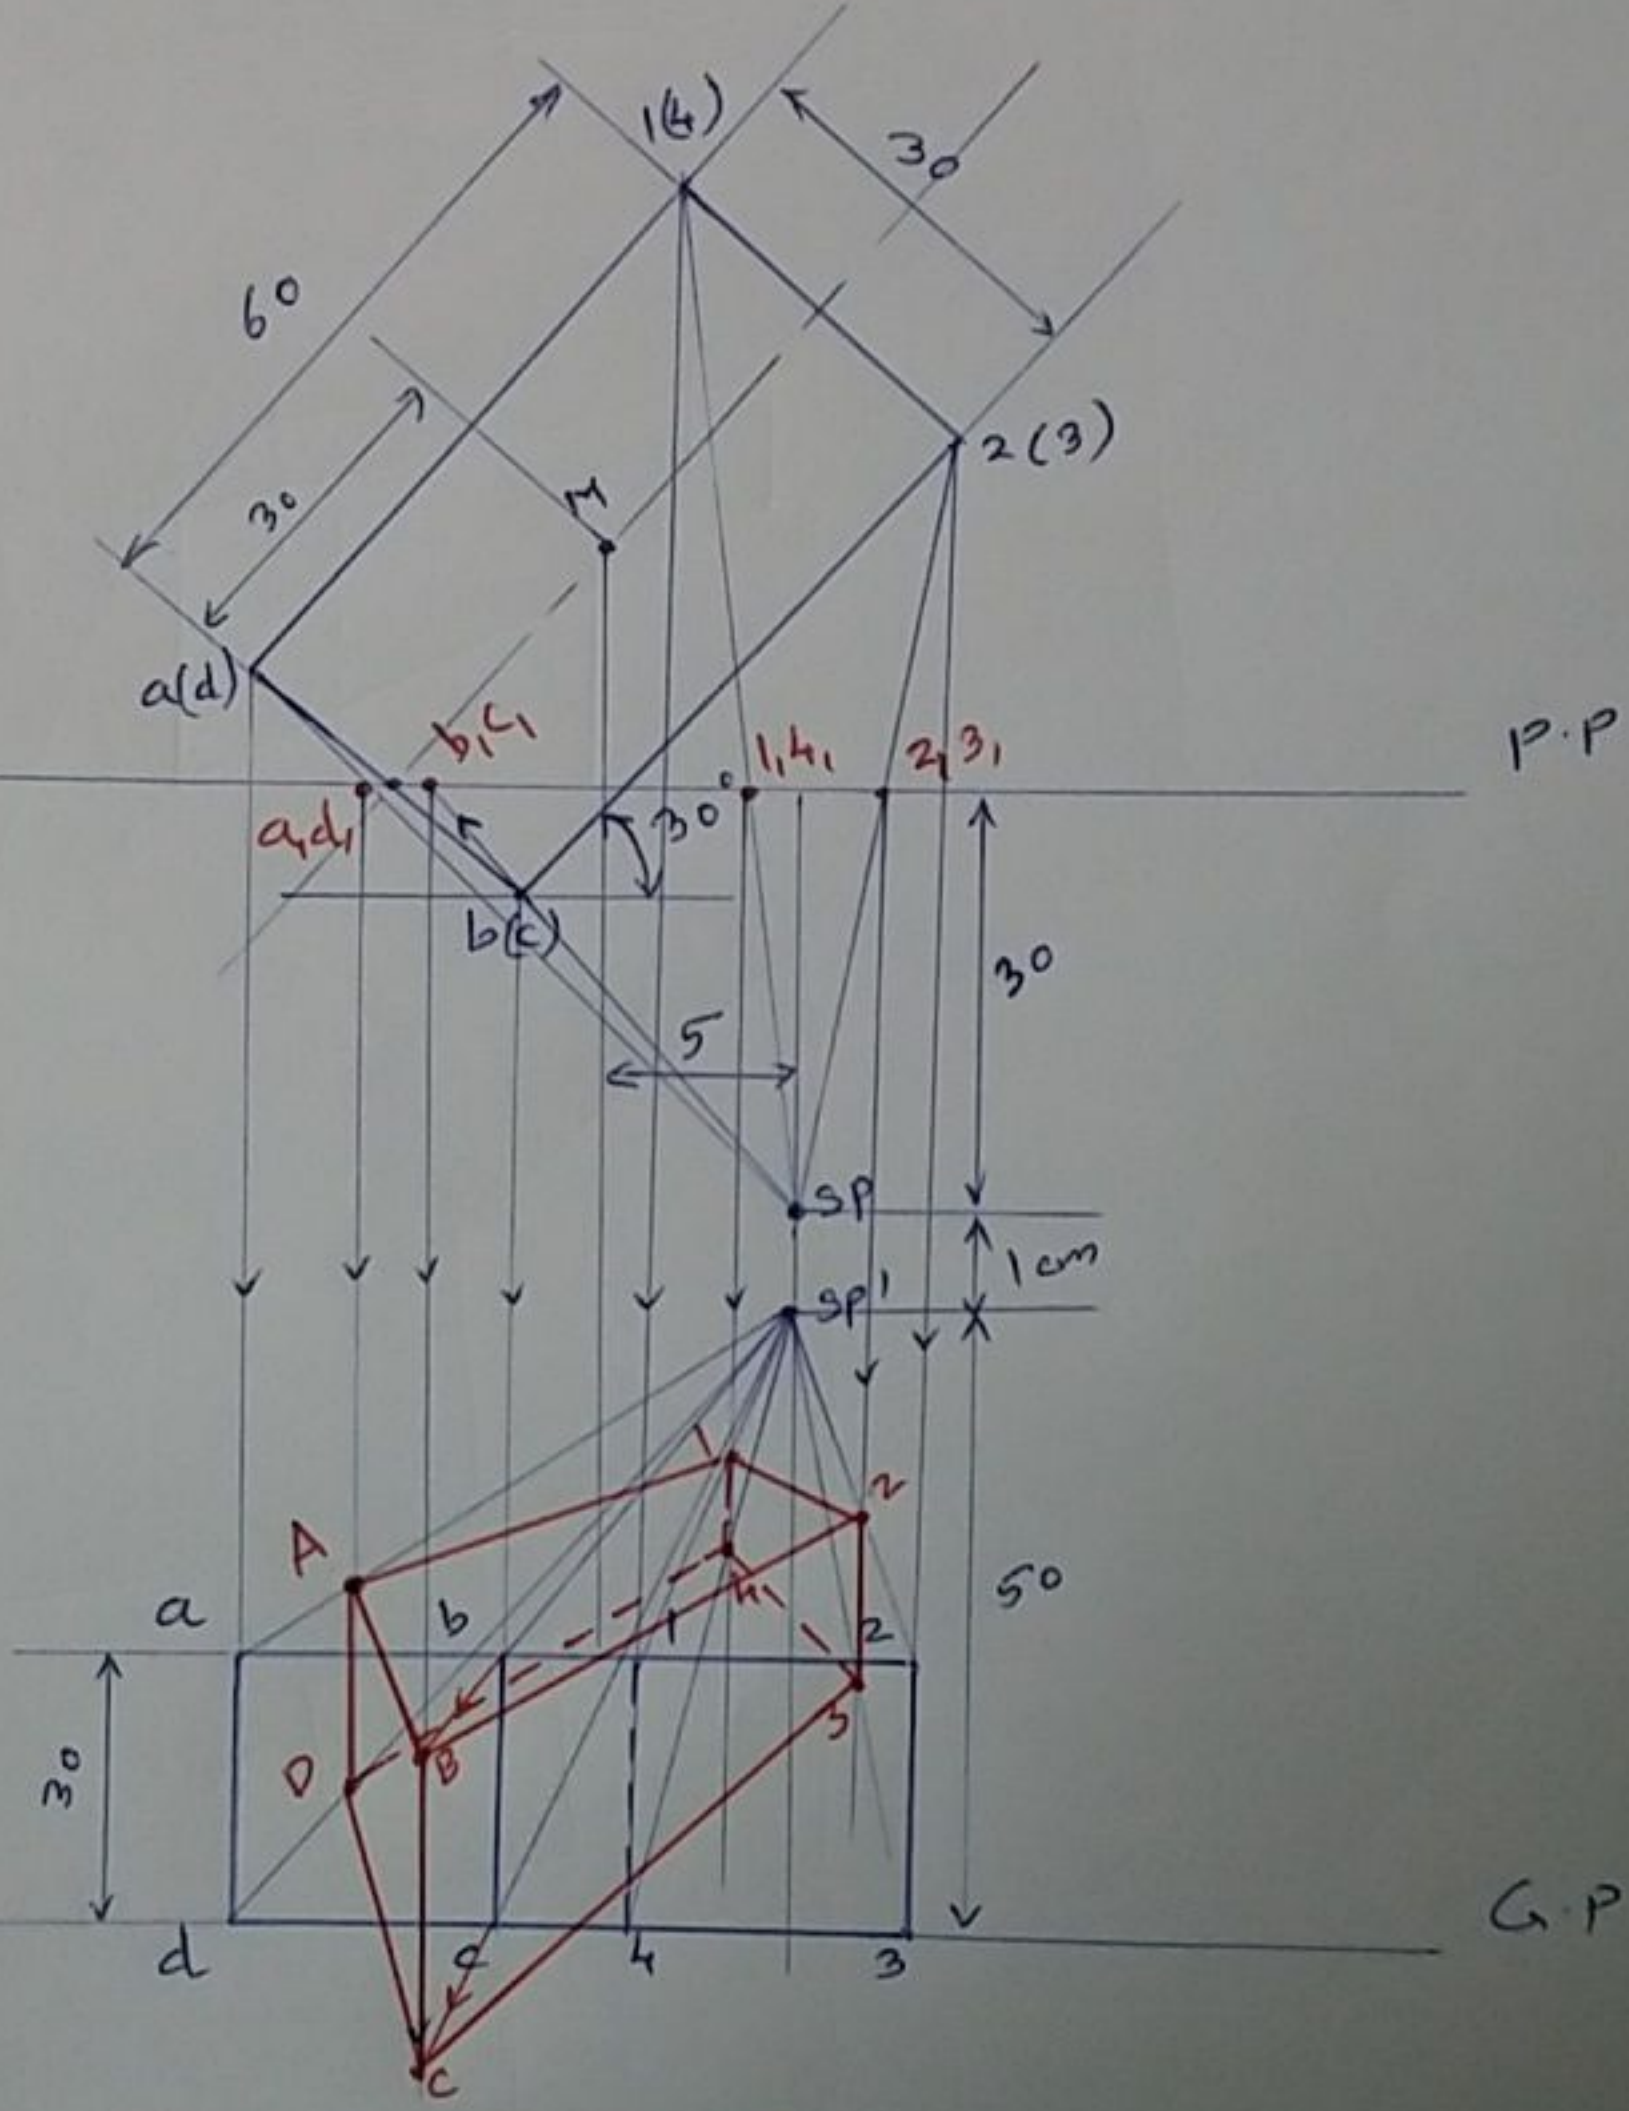 1(4)
30
60
2(3)
30
M
a(d)
b₁c₁
1₁4₁
2₁3₁
P.P
a₁d₁
30°
b(c)
30
5
SP
1 cm
SP'
1
2
A
50
a
b
4₁
1
2
3
D
B
30
G.P
d
c
4
3
C